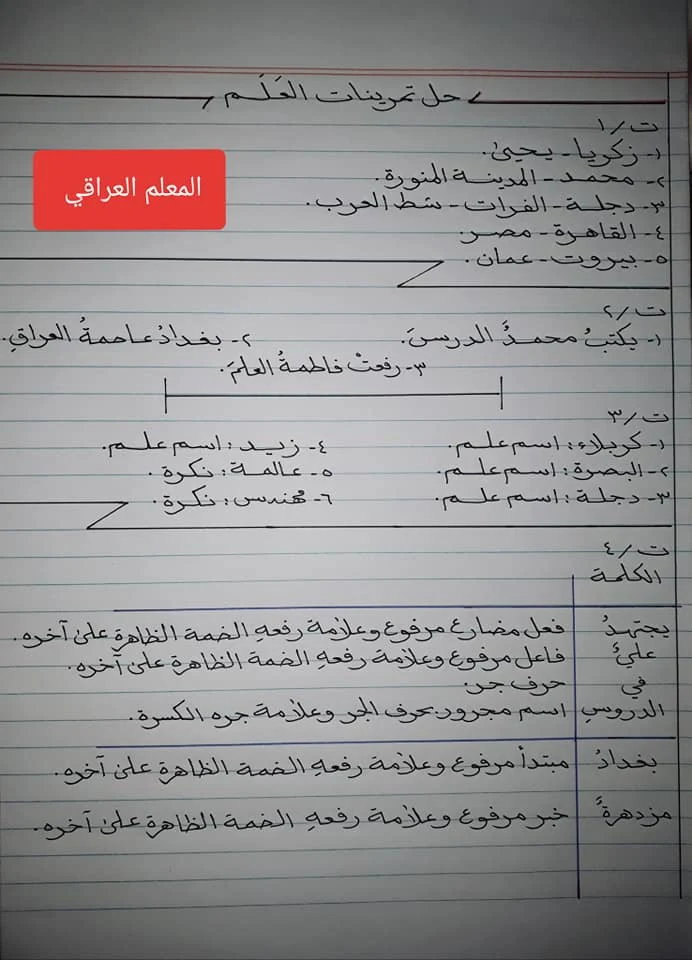 حل تمرينات العَلَم
ت/١
١- زكريا - يحيىٰ.
المعلم العراقي
٢- محمد - المدينة المنورة.
٣- دجلة - الفرات - شط العرب.
٤- القاهرة - مصر.
٥- بيروت - عمان.
ت/٢
١- يكتبُ محمدٌ الدرسَ. ٢- بغدادُ عاصمةُ العراقِ.
٣- رفعتْ فاطمةُ العلمَ.
ت/٣
١- كربلاء: اسم علم. ٤- زيد: اسم علم.
٢- البصرة: اسم علم. ٥- عالمة: نكرة.
٣- دجلة: اسم علم. ٦- مهندس: نكرة.
ت/٤
الكلمة
يجتهدُ فعل مضارع مرفوع وعلامة رفعهِ الضمة الظاهرة علىٰ آخره.
عليٌ فاعل مرفوع وعلامة رفعهِ الضمة الظاهرة علىٰ آخره.
في حرف جر.
الدروسِ اسم مجرور بحرف الجر وعلامة جره الكسرة.
بغدادُ مبتدأ مرفوع وعلامة رفعهِ الضمة الظاهرة علىٰ آخره.
مزدهرةٌ خبر مرفوع وعلامة رفعهِ الضمة الظاهرة علىٰ آخره.